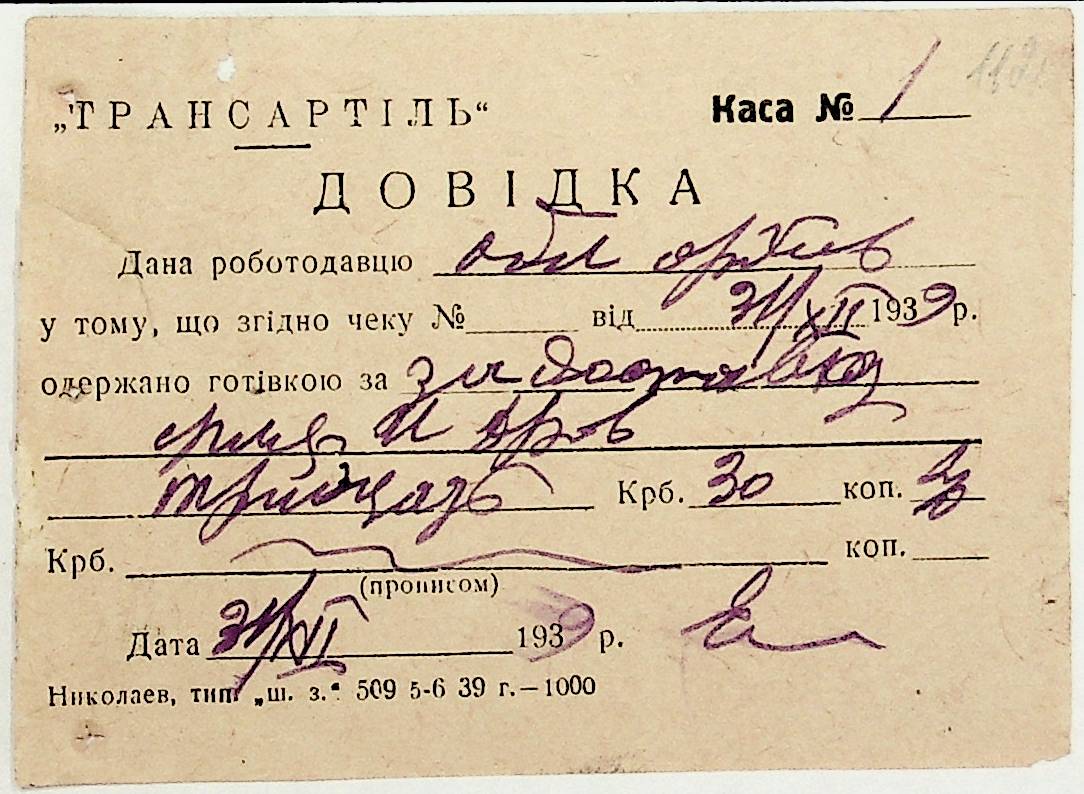 „ТРАНСАРТІЛЬ“ Каса № 1
ДОВІДКА
Дана роботодавцю обл архив
у тому, що згідно чеку № від 31/XII 1939 р.
одержано готівкою за за доставку
и дров
тридцать Крб. 30 коп.
Крб. коп.
(прописом)
Дата 31/XII 1939 р.
Николаев, тип. „ш. з.“ 509 5-6 39 г.—1000